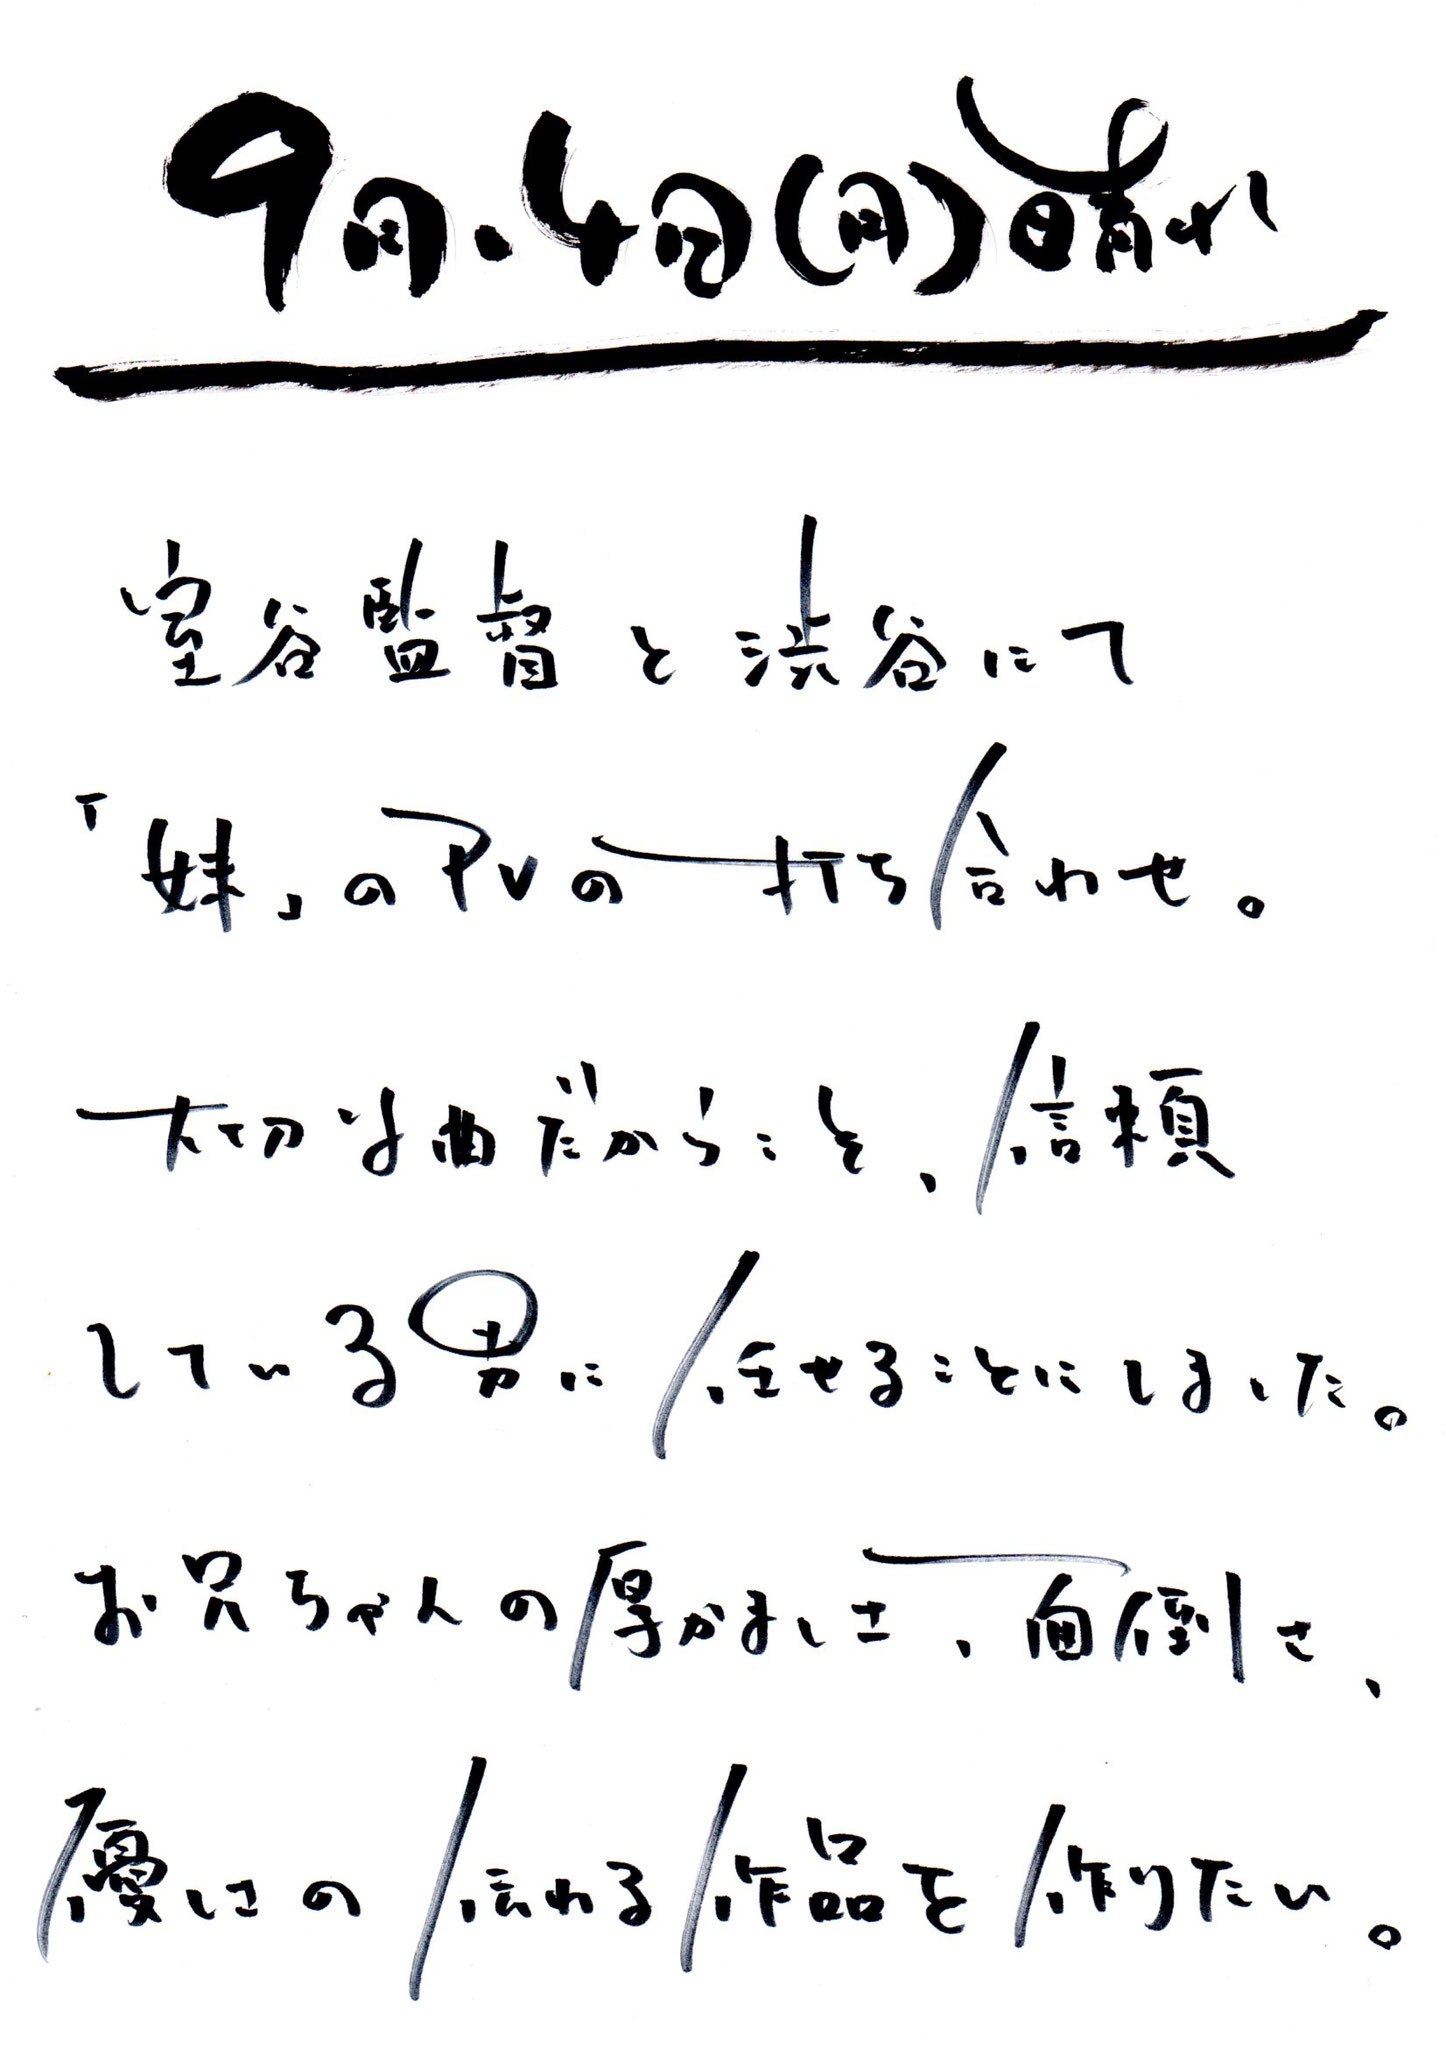 9月.4日(月)晴れ
室谷監督と渋谷にて
「妹」のPVの打ち合わせ。
大切な曲だからこそ、信頼
している男に任せることにしました。
お兄ちゃんの厚かましさ、面倒さ、
優しさの伝わる作品を作りたい。